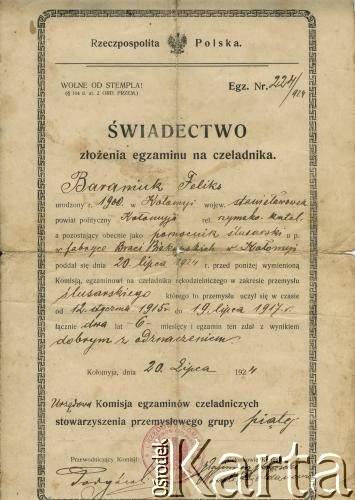 Rzeczpospolita Polska.
WOLNE OD STEMPLA!
(§ 104 d. al. 2 ORD. PRZEM.)
Egz. Nr. 224/924
ŚWIADECTWO
złożenia egzaminu na czeladnika.
Baraniuk Feliks
urodzony r. 1900. w Kołomyi wojew. stanisławowsk.
powiat polityczny Kołomyja rel. rzymsko. katol.
a pozostający obecnie jako pomocnik ślusarski u p.
w fabryce Braci w Kołomyi
poddał się dnia 20 lipca 1924 r. przed poniżej wymienioną
Komisją, egzaminowi na czeladnika rękodzielniczego w zakresie przemysłu
ślusarskiego którego to przemysłu uczył się w czasie
od 12. stycznia 1915 r. do 19. lipca 1917 r.
łącznie dwa lat 6- miesięcy i egzamin ten zdał z wynikiem
dobrym z odznaczeniem.
Kołomyja, dnia 20. Lipca 1924
Urzędowa Komisja egzaminów czeladniczych
stowarzyszenia przemysłowego grupy piątej
Przewodniczący Komisji:
ośrodek Karta